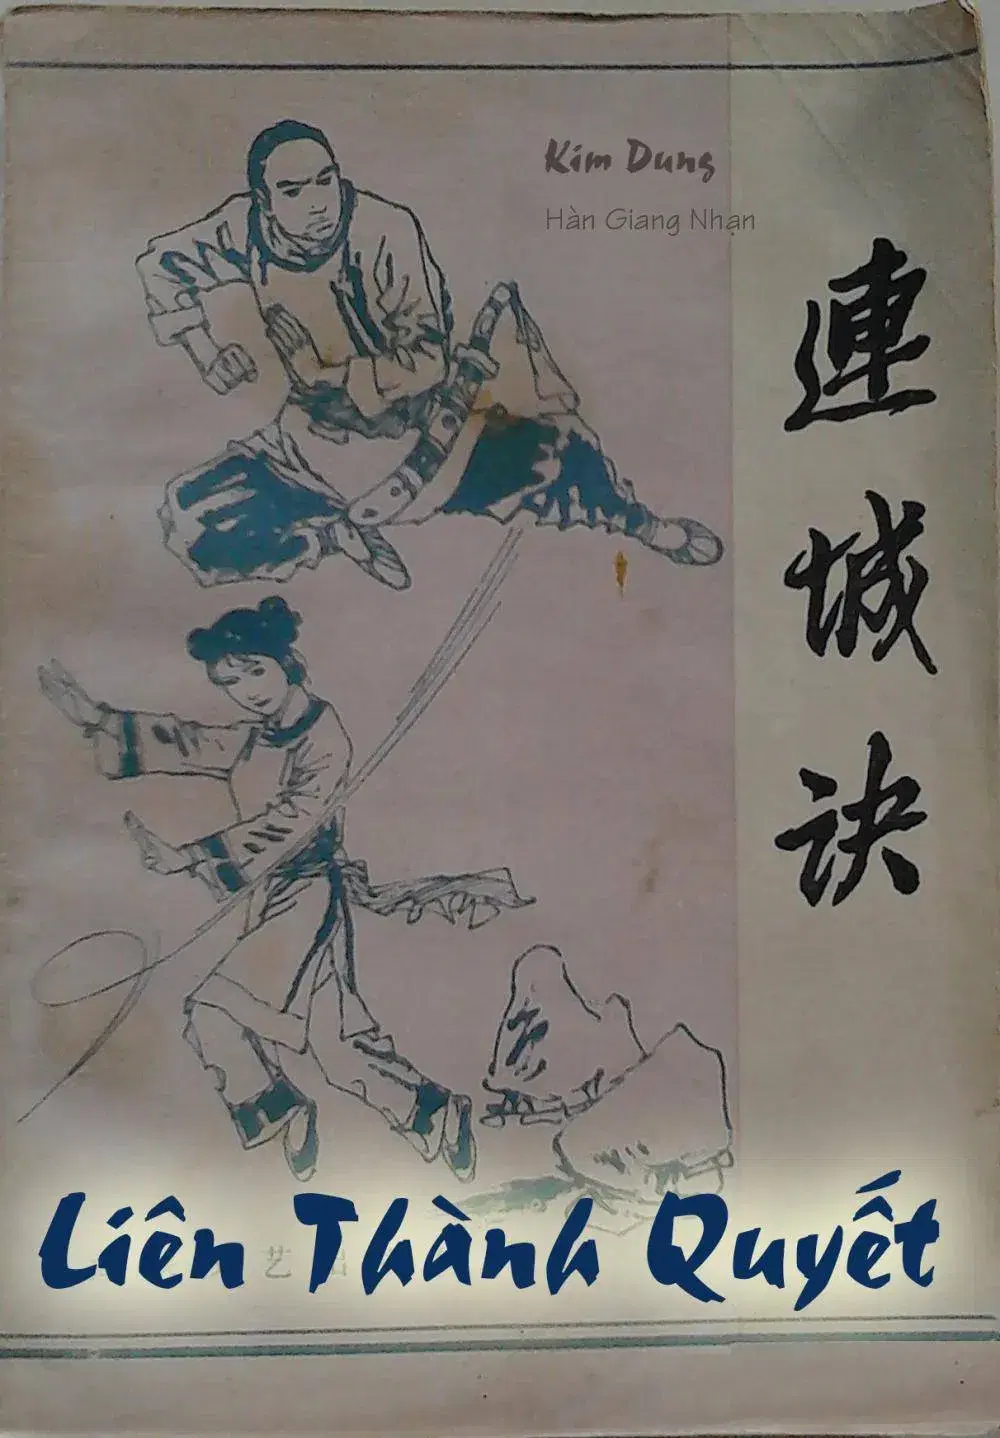 Kim Dung
Hàn Giang Nhạn
連城訣
Liên Thành Quyết
艺